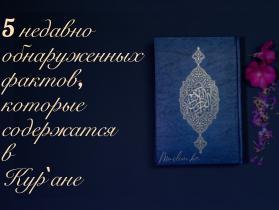 5 недавно
обнаруженных
фактов,
которые
содержатся
в
Кур`ане